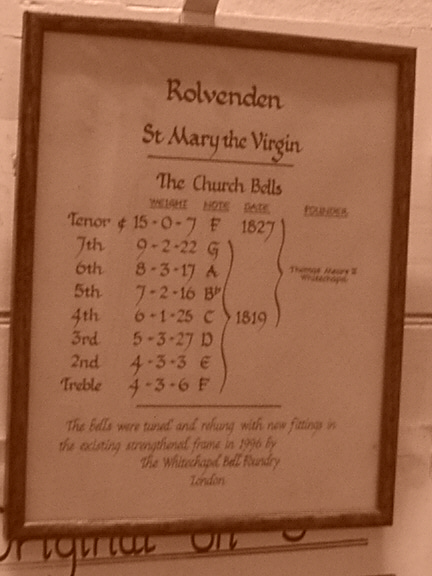 Rolvenden
St Mary the Virgin
The Church Bells
WEIGHT NOTE DATE FOUNDER
Tenor ¢ 15-0-7 F 1827
7th 9-2-22 G
6th 8-3-17 A Thomas Mears II Whitechapel
5th 7-2-16 Bb
4th 6-1-25 C 1819
3rd 5-3-27 D
2nd 4-3-3 E
Treble 4-3-6 F
The bells were tuned and rehung with new fittings in
the existing strengthened frame in 1996 by
The Whitechapel Bell Foundry
London
Original on